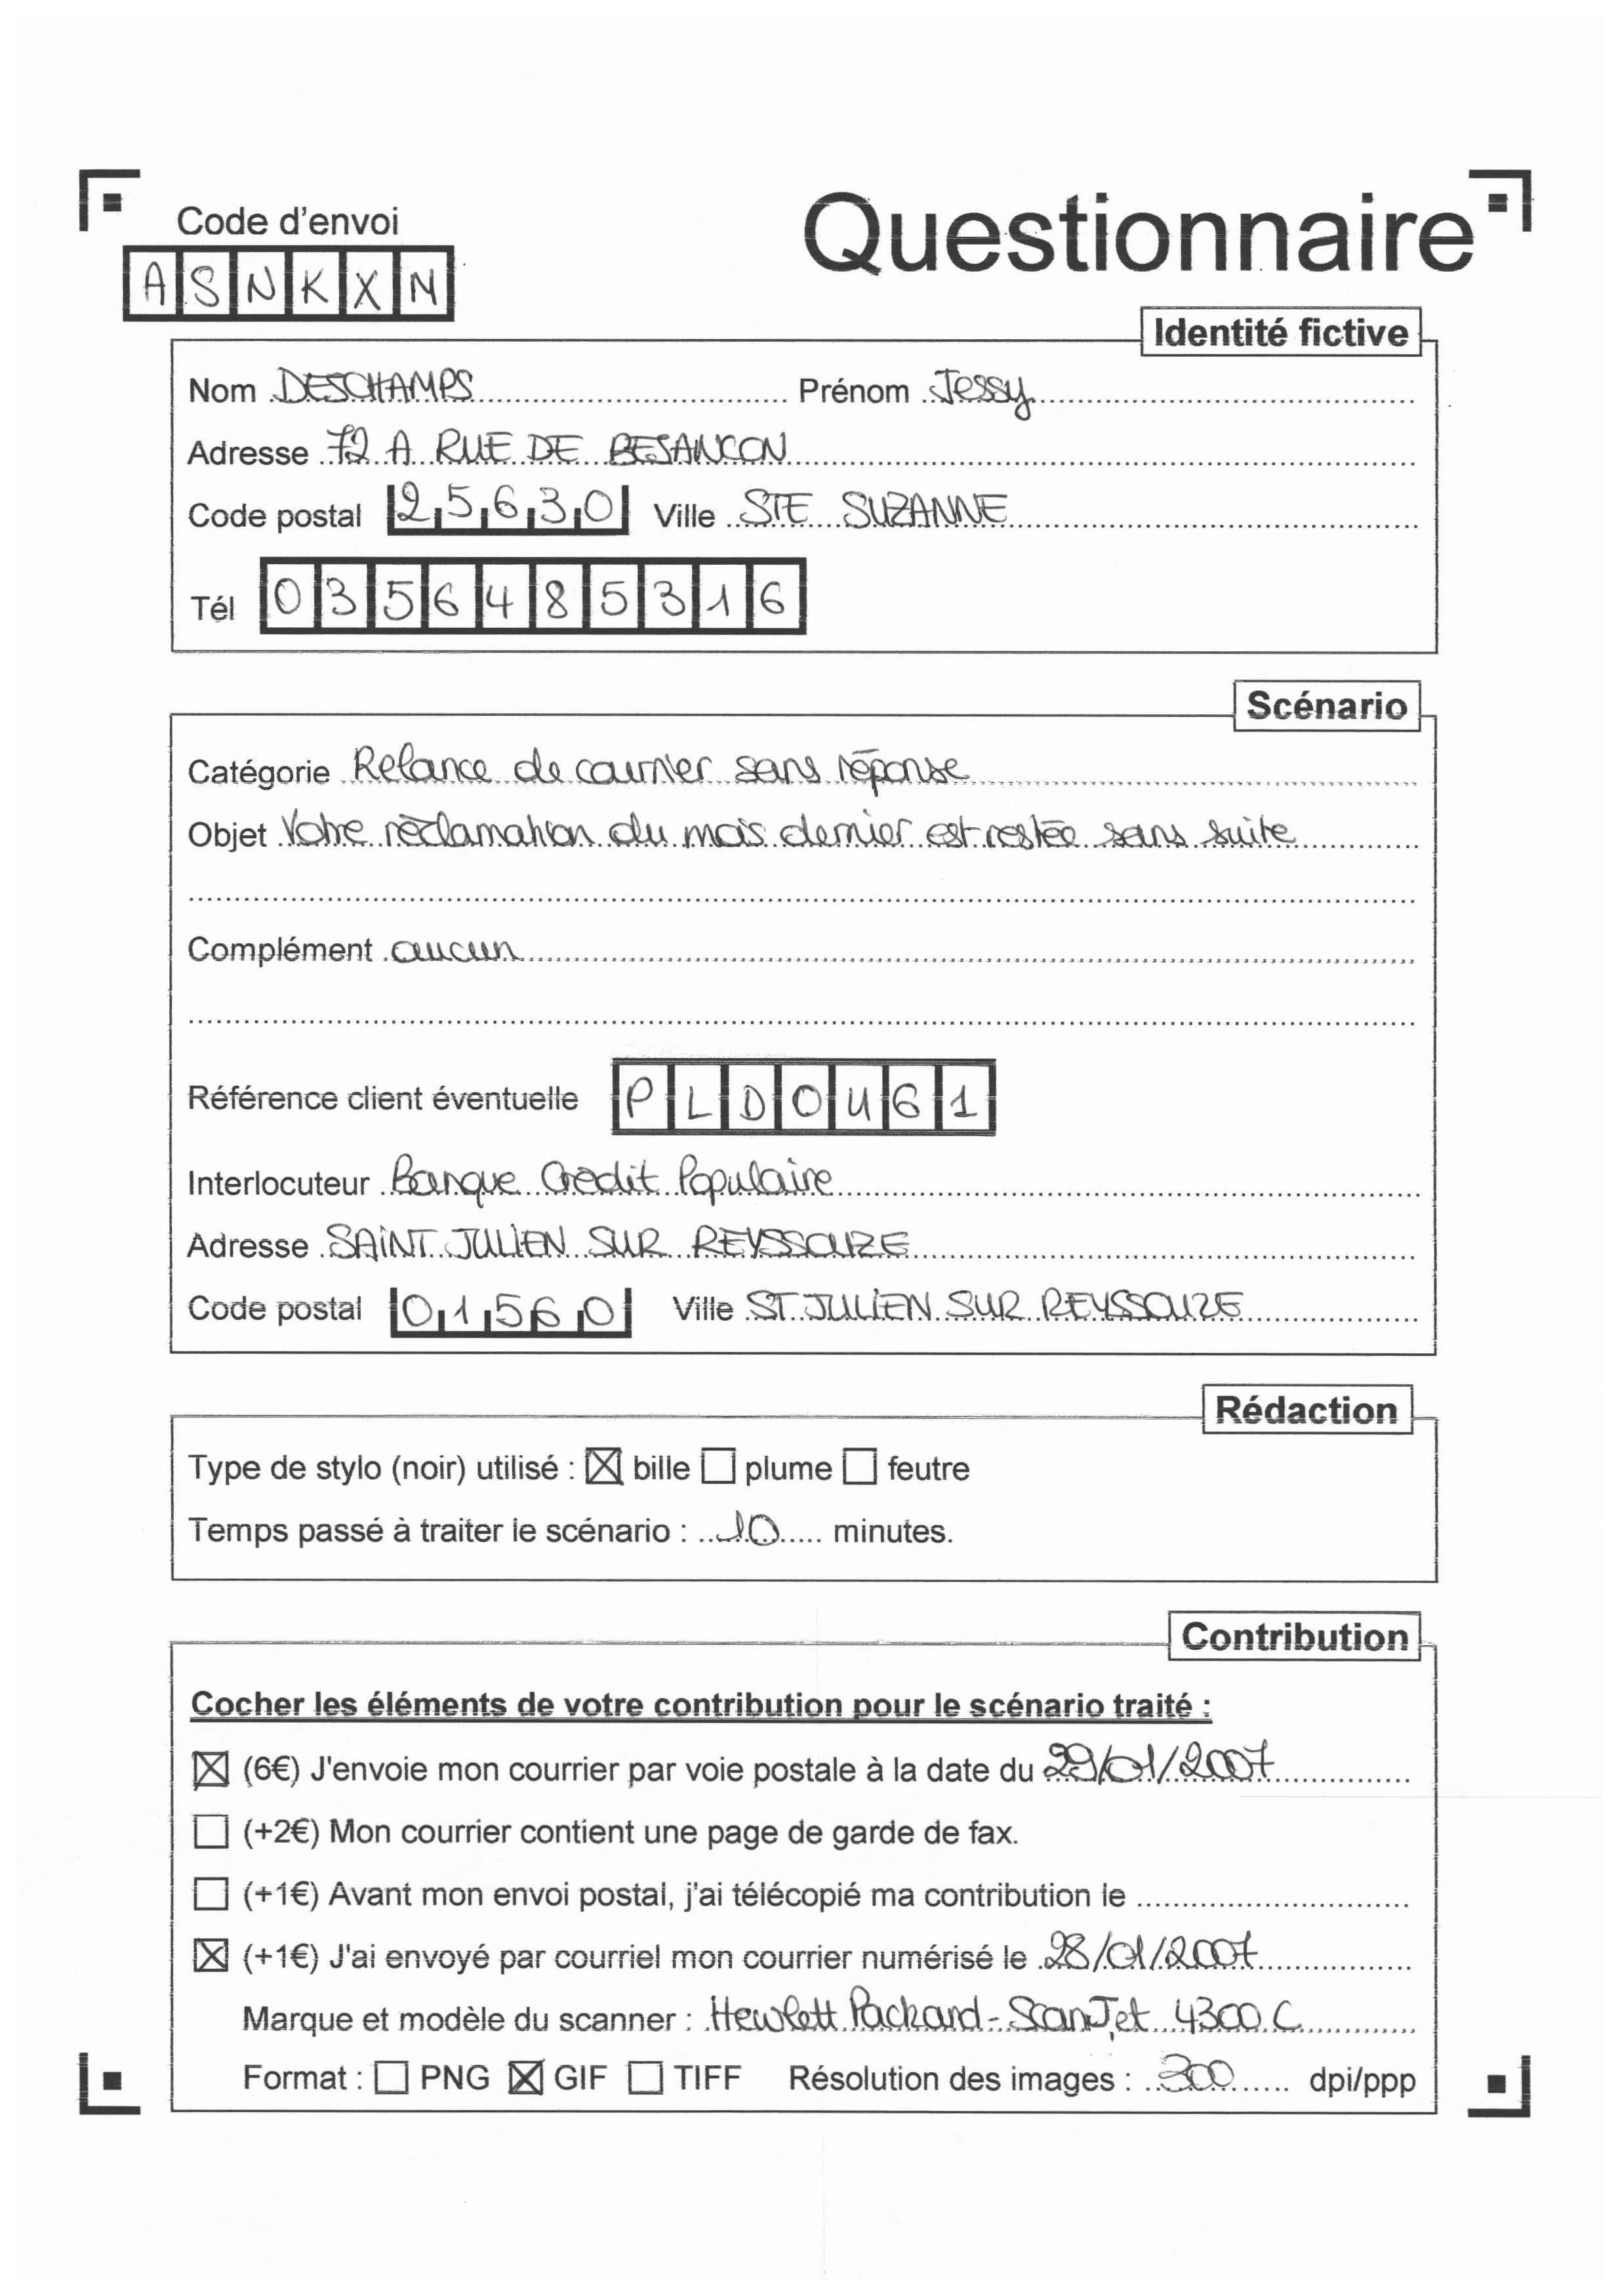 Code d'envoi
Questionnaire
ASNKXN
Identité fictive
Nom DESCHAMPS Prénom Jessy
Adresse 72 A RUE DE BESANCON
Code postal 25630 Ville STE SUZANNE
Tél 0356485316
Scénario
Catégorie Relance de courrier sans réponse
Objet Votre réclamation du mois dernier est restée sans suite
Complément aucun
Référence client éventuelle PLDOU61
Interlocuteur Banque Crédit Populaire
Adresse SAINT JULIEN SUR REYSSOUZE
Code postal 01560 Ville ST JULIEN SUR REYSSOUZE
Rédaction
Type de stylo (noir) utilisé : ☒ bille ☐ plume ☐ feutre
Temps passé à traiter le scénario : 10 minutes.
Contribution
Cocher les éléments de votre contribution pour le scénario traité :
☒ (6€) J'envoie mon courrier par voie postale à la date du 29/01/2007
☐ (+2€) Mon courrier contient une page de garde de fax.
☐ (+1€) Avant mon envoi postal, j'ai télécopié ma contribution le
☒ (+1€) J'ai envoyé par courriel mon courrier numérisé le 28/01/2007
Marque et modèle du scanner : Hewlett Packard - ScanJet 4300 C
Format : ☐ PNG ☒ GIF ☐ TIFF Résolution des images : 300 dpi/ppp